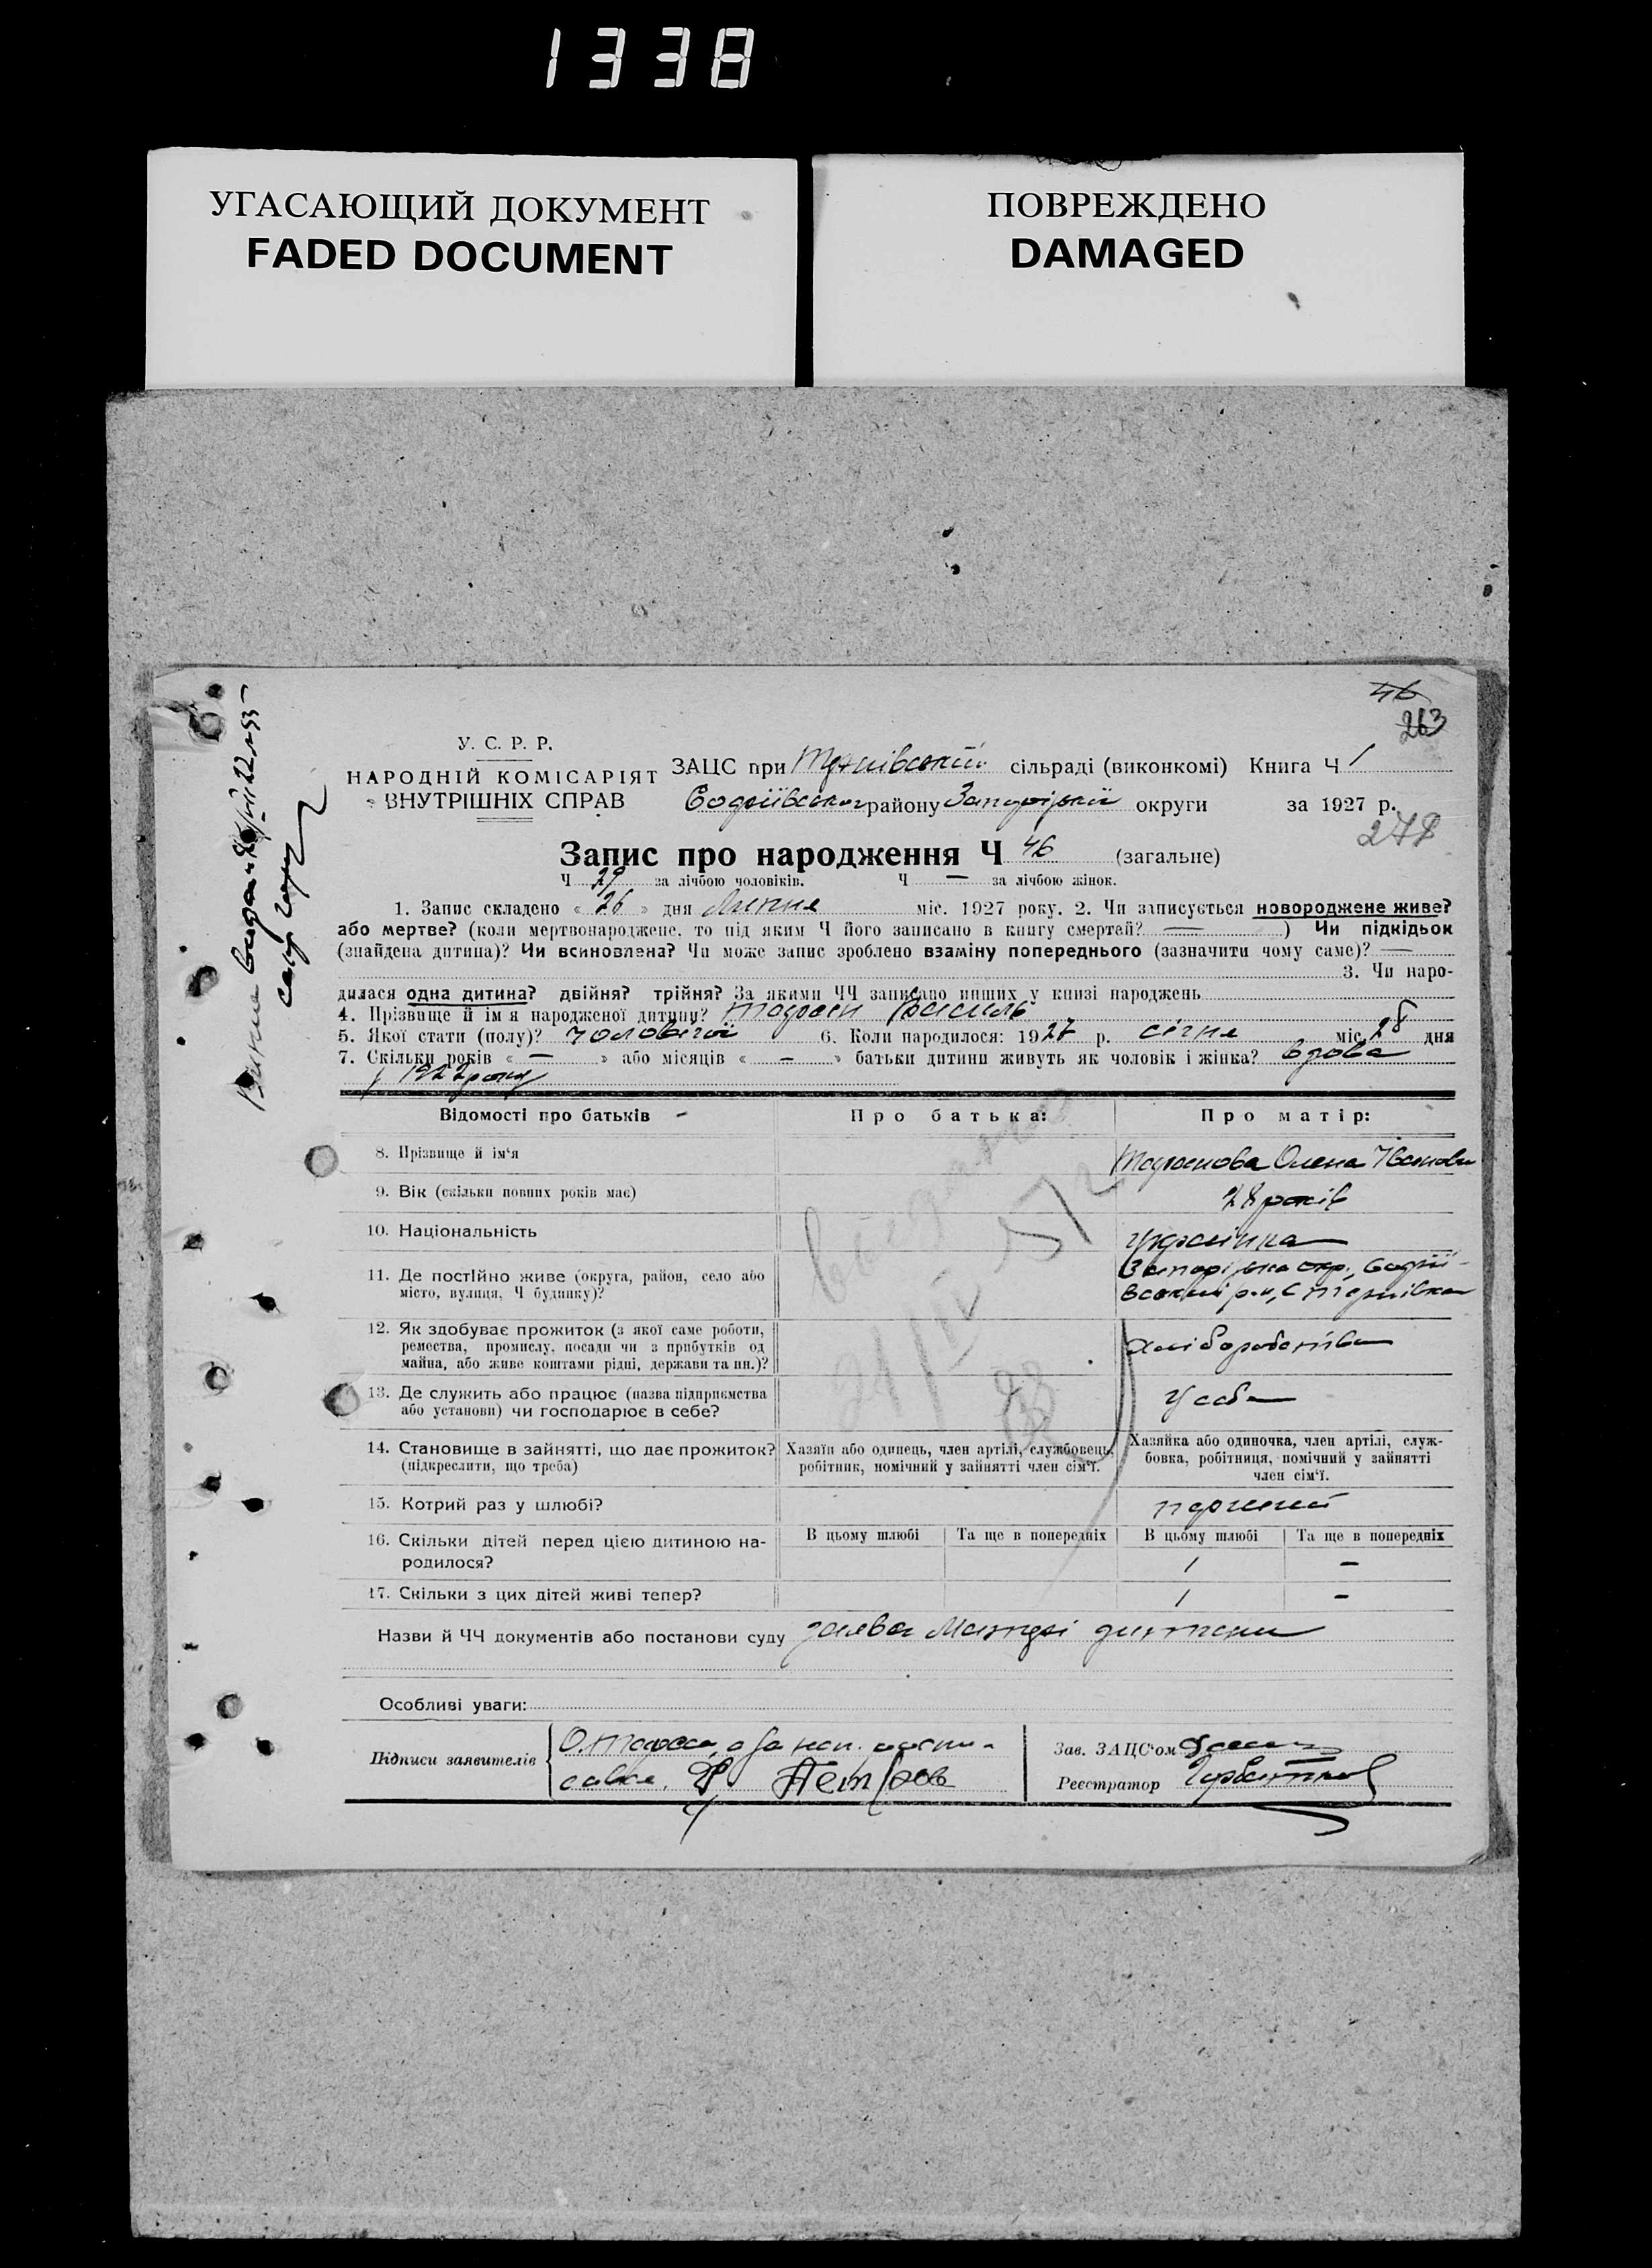 1338
УГАСАЮЩИЙ ДОКУМЕНТ
FADED DOCUMENT
ПОВРЕЖДЕНО
DAMAGED
46
263
У. С. Р. Р.
НАРОДНІЙ КОМІСАРІЯТ
ВНУТРІШНІХ СПРАВ
ЗАЦС при Тернівській сільраді (виконкомі) Книга Ч 1
району Запорізької округи за 1927 р.
278
Запис про народження Ч 46 (загальне)
Ч 29 за лічбою чоловіків. Ч — за лічбою жінок.
1. Запис складено « 26 » дня Липня міс. 1927 року. 2. Чи записується новороджене живе?
або мертве? (коли мертвонароджене, то під яким Ч його записано в книгу смертей? — ) Чи підкідьок
(знайдена дитина)? Чи всиновлена? Чи може запис зроблено взаміну попереднього (зазначити чому саме)? —
3. Чи наро-
дилася одна дитина? двійня? трійня? За якими ЧЧ записано инших у книзі народжень
4. Прізвище й ім'я народженої дитини? Василь
5. Якої стати (полу)? чоловічої 6. Коли народилося: 1927 р. січня міс. 28 дня
7. Скільки років « — » або місяців « — » батьки дитини живуть як чоловік і жінка? вдова
з 1922 року
Відомості про батьків Про батька: Про матір:
8. Прізвище й ім'я Олена
9. Вік (скільки повних років має) 28 років
10. Національність українка
11. Де постійно живе (округа, район, село або
місто, вулиця, Ч будинку)?
Запорізька окр.,
р-н, с Тернівка
12. Як здобуває прожиток (з якої саме роботи,
ремества, промислу, посади чи з прибутків од
майна, або живе коштами рідні, держави та ин.)?
хліборобство
13. Де служить або працює (назва підприємства
або установи) чи господарює в себе?
у себе
14. Становище в зайнятті, що дає прожиток?
(підкреслити, що треба)
Хазяїн або одинець, член артілі, службовець,
робітник, помічний у зайнятті член сім'ї.
Хазяйка або одиночка, член артілі, служ-
бовка, робітниця, помічний у зайнятті
член сім'ї.
15. Котрий раз у шлюбі? перший
16. Скільки дітей перед цією дитиною на-
родилося?
В цьому шлюбі Та ще в попередніх В цьому шлюбі Та ще в попередніх
1 —
17. Скільки з цих дітей живі тепер? 1 —
Назви й ЧЧ документів або постанови суду заява Матері дитини
Особливі уваги:
Підписи заявителів
Зав. ЗАЦС'ом
Реєстратор